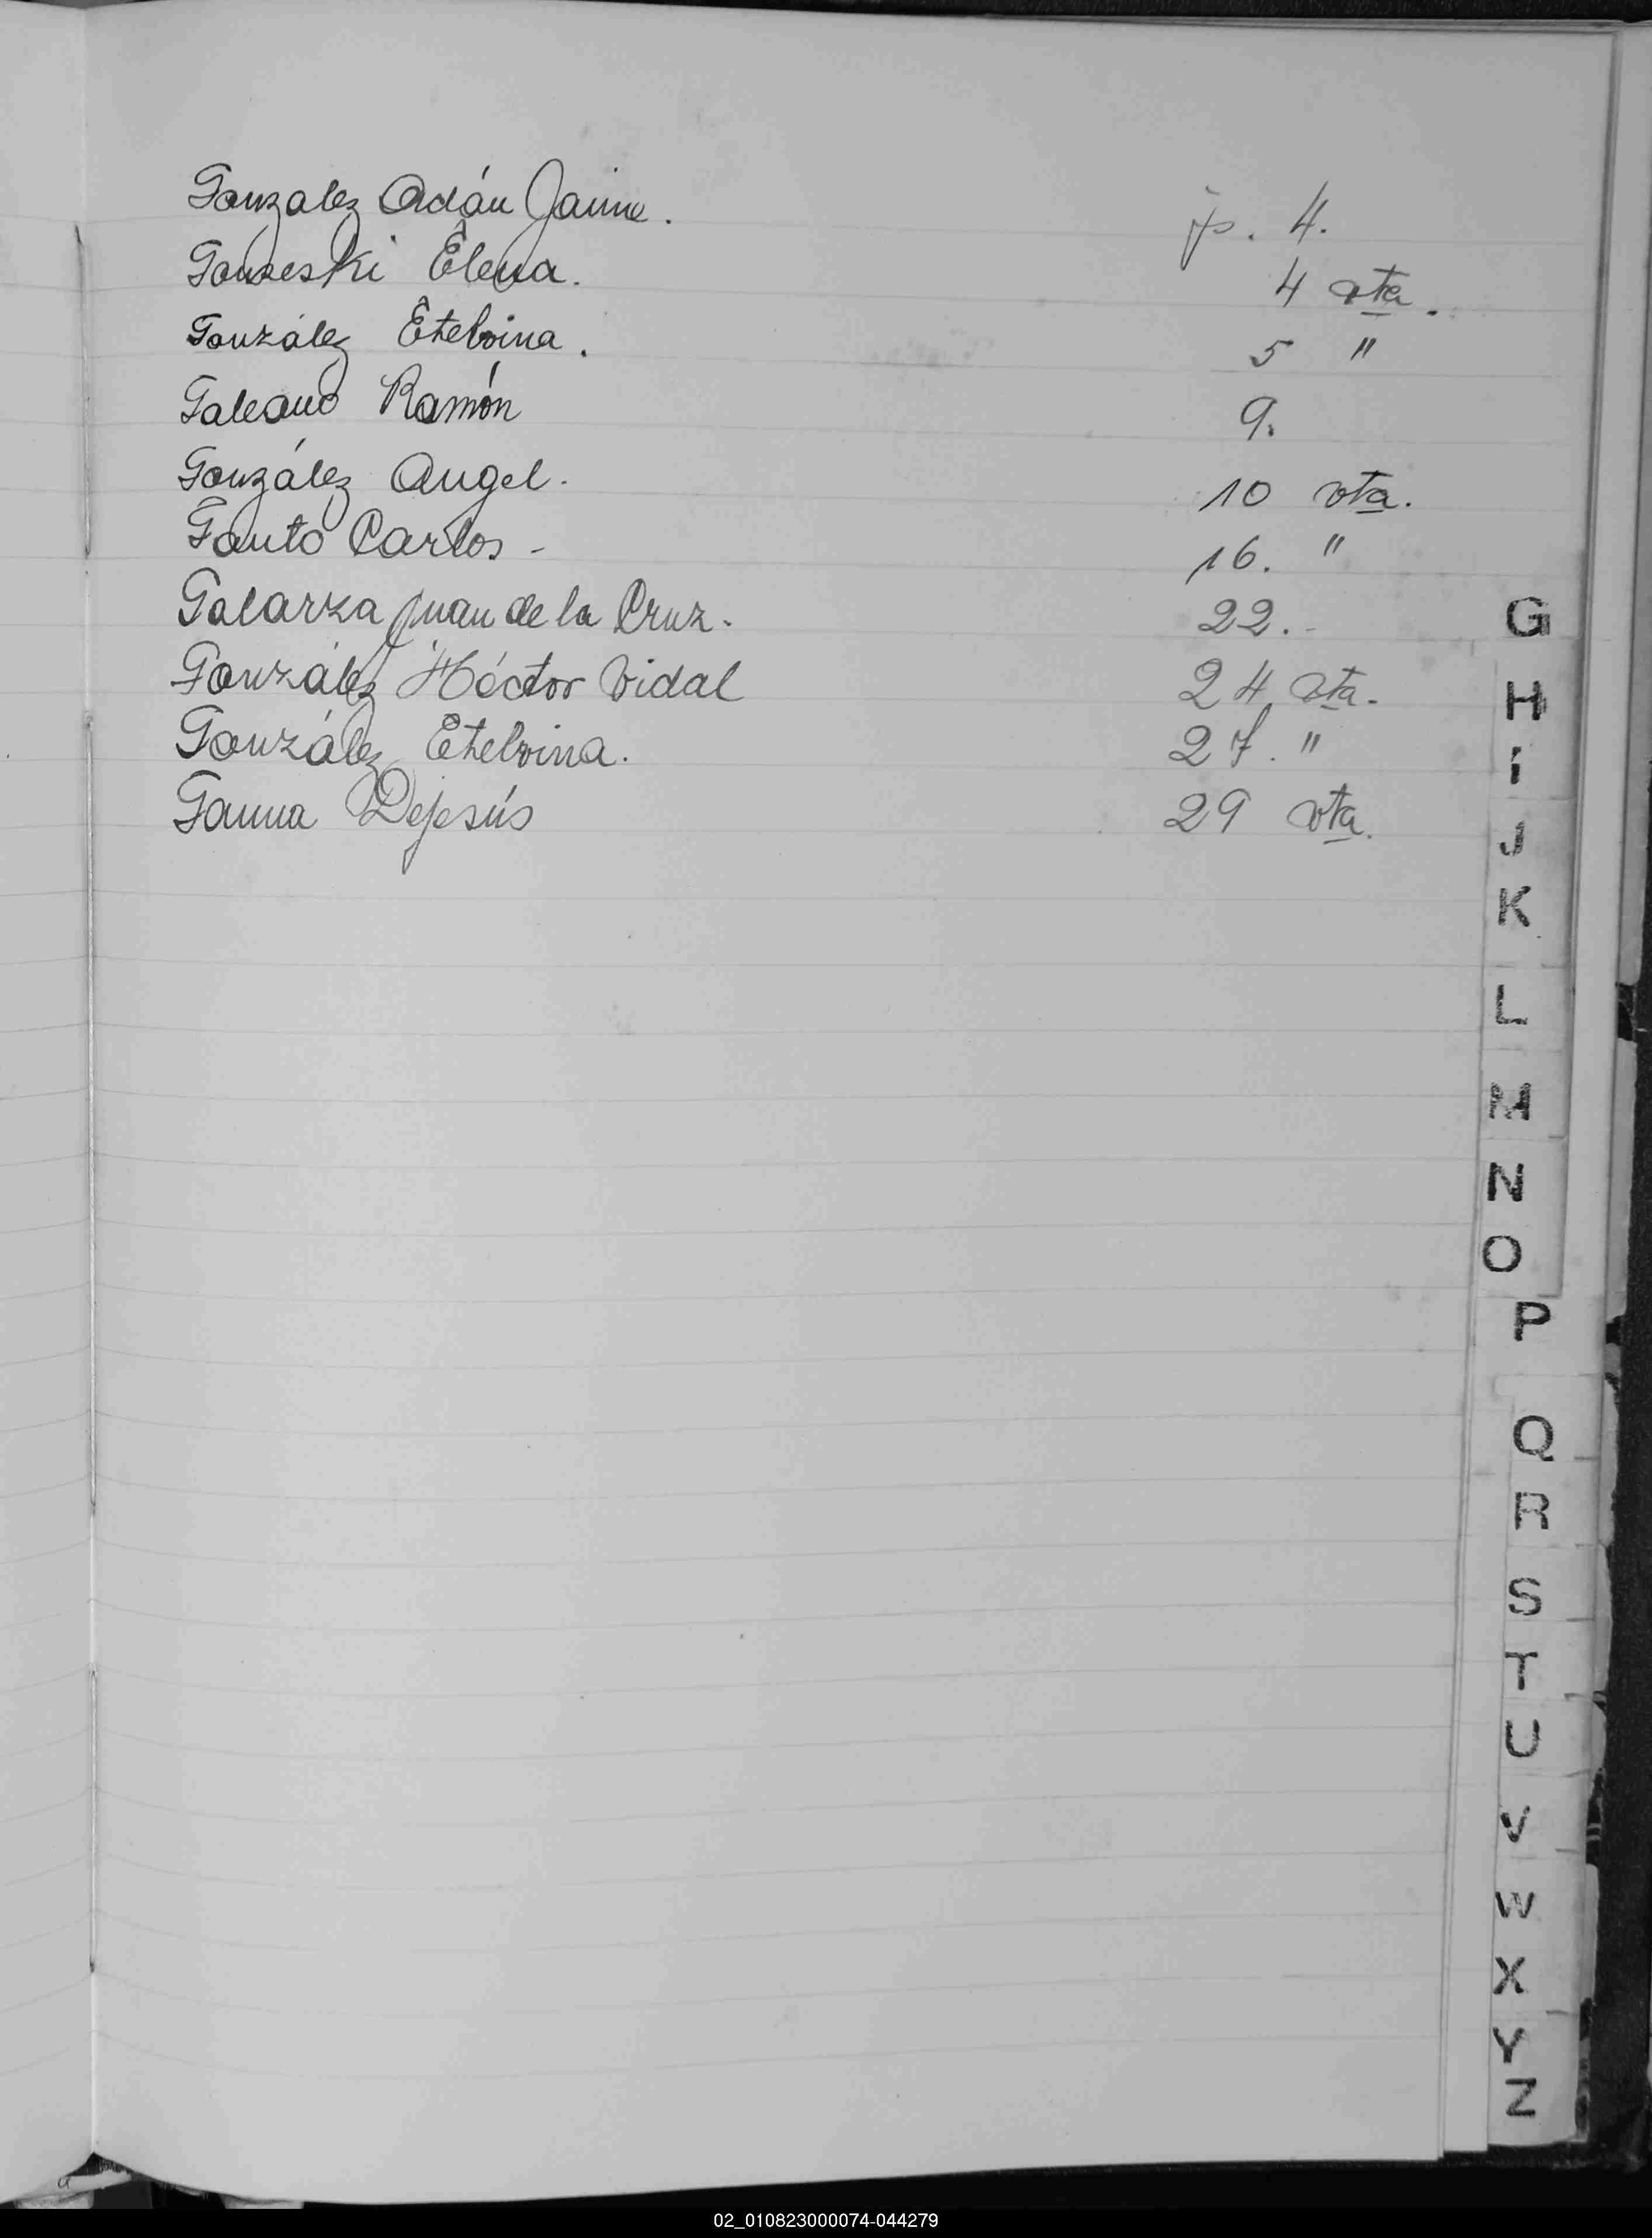 Gonzalez Adán Jaime. fs. 4.
Gonseski Elena. 4 vta.
González Etelvina. 5 "
Galeano Ramón 9.
González Angel. 10 vta.
Gauto Carlos - 16. "
Galarza Juan de la Cruz. 22.-
González Héctor Vidal 24 vta.
González Etelvina. 27. "
Gauna Dejesús 29 vta.
G
H
I
J
K
L
M
N
O
P
Q
R
S
T
U
V
W
X
Y
Z
02_010823000074-044279